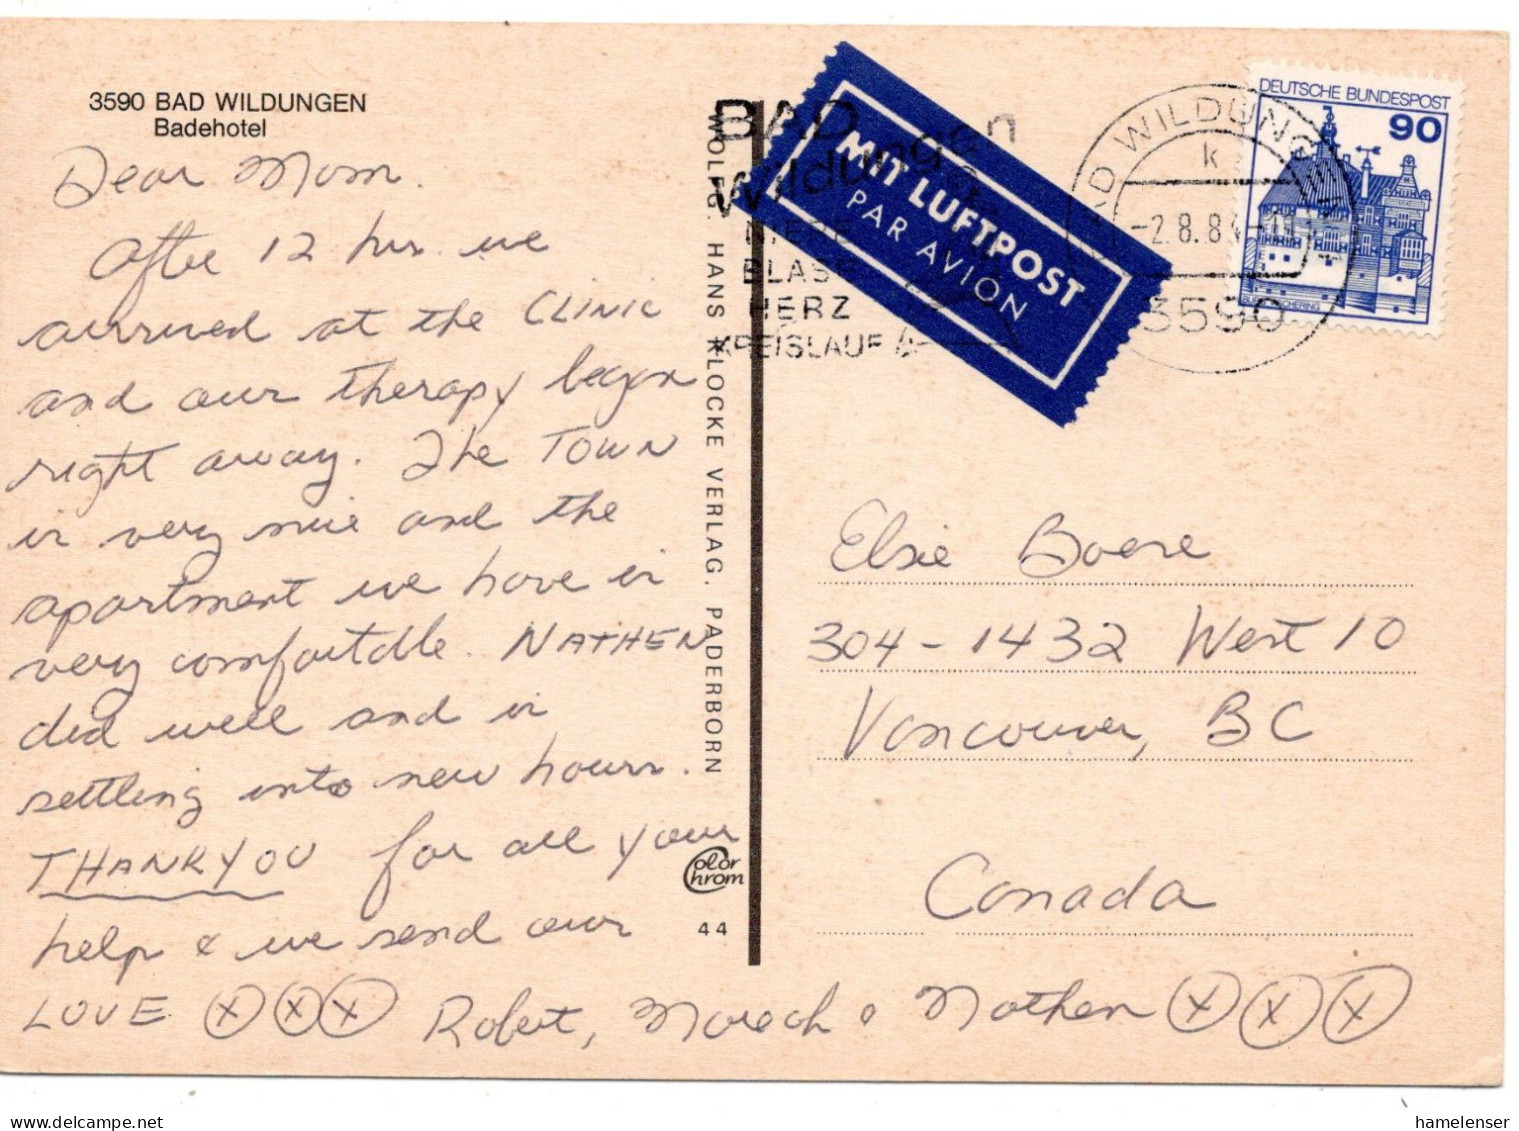 3590 BAD WILDUNGEN
Badehotel
Dear Mom.
After 12 hrs we
arrived at the CLINIC
and our therapy began
right away. The TOWN
is very nice and the
apartment we have is
very comfortable. NATHEN
did well and is
settling into new hours.
THANKYOU for all your
help & we send our
LOVE ⓧ ⓧ ⓧ Robert, & Nathen ⓧ ⓧ ⓧ
WOLFG. HANS KLOCKE VERLAG. PADERBORN
Color
Chrom
44
BAD
Wildungen
BLASE
HERZ
KREISLAUF
MIT LUFTPOST
PAR AVION
BAD WILDUNGEN
k
-2.8.84-
3590
DEUTSCHE BUNDESPOST
90
Elsie Boere
304-1432 West 10
Vancouver, BC
Canada
hamelenser